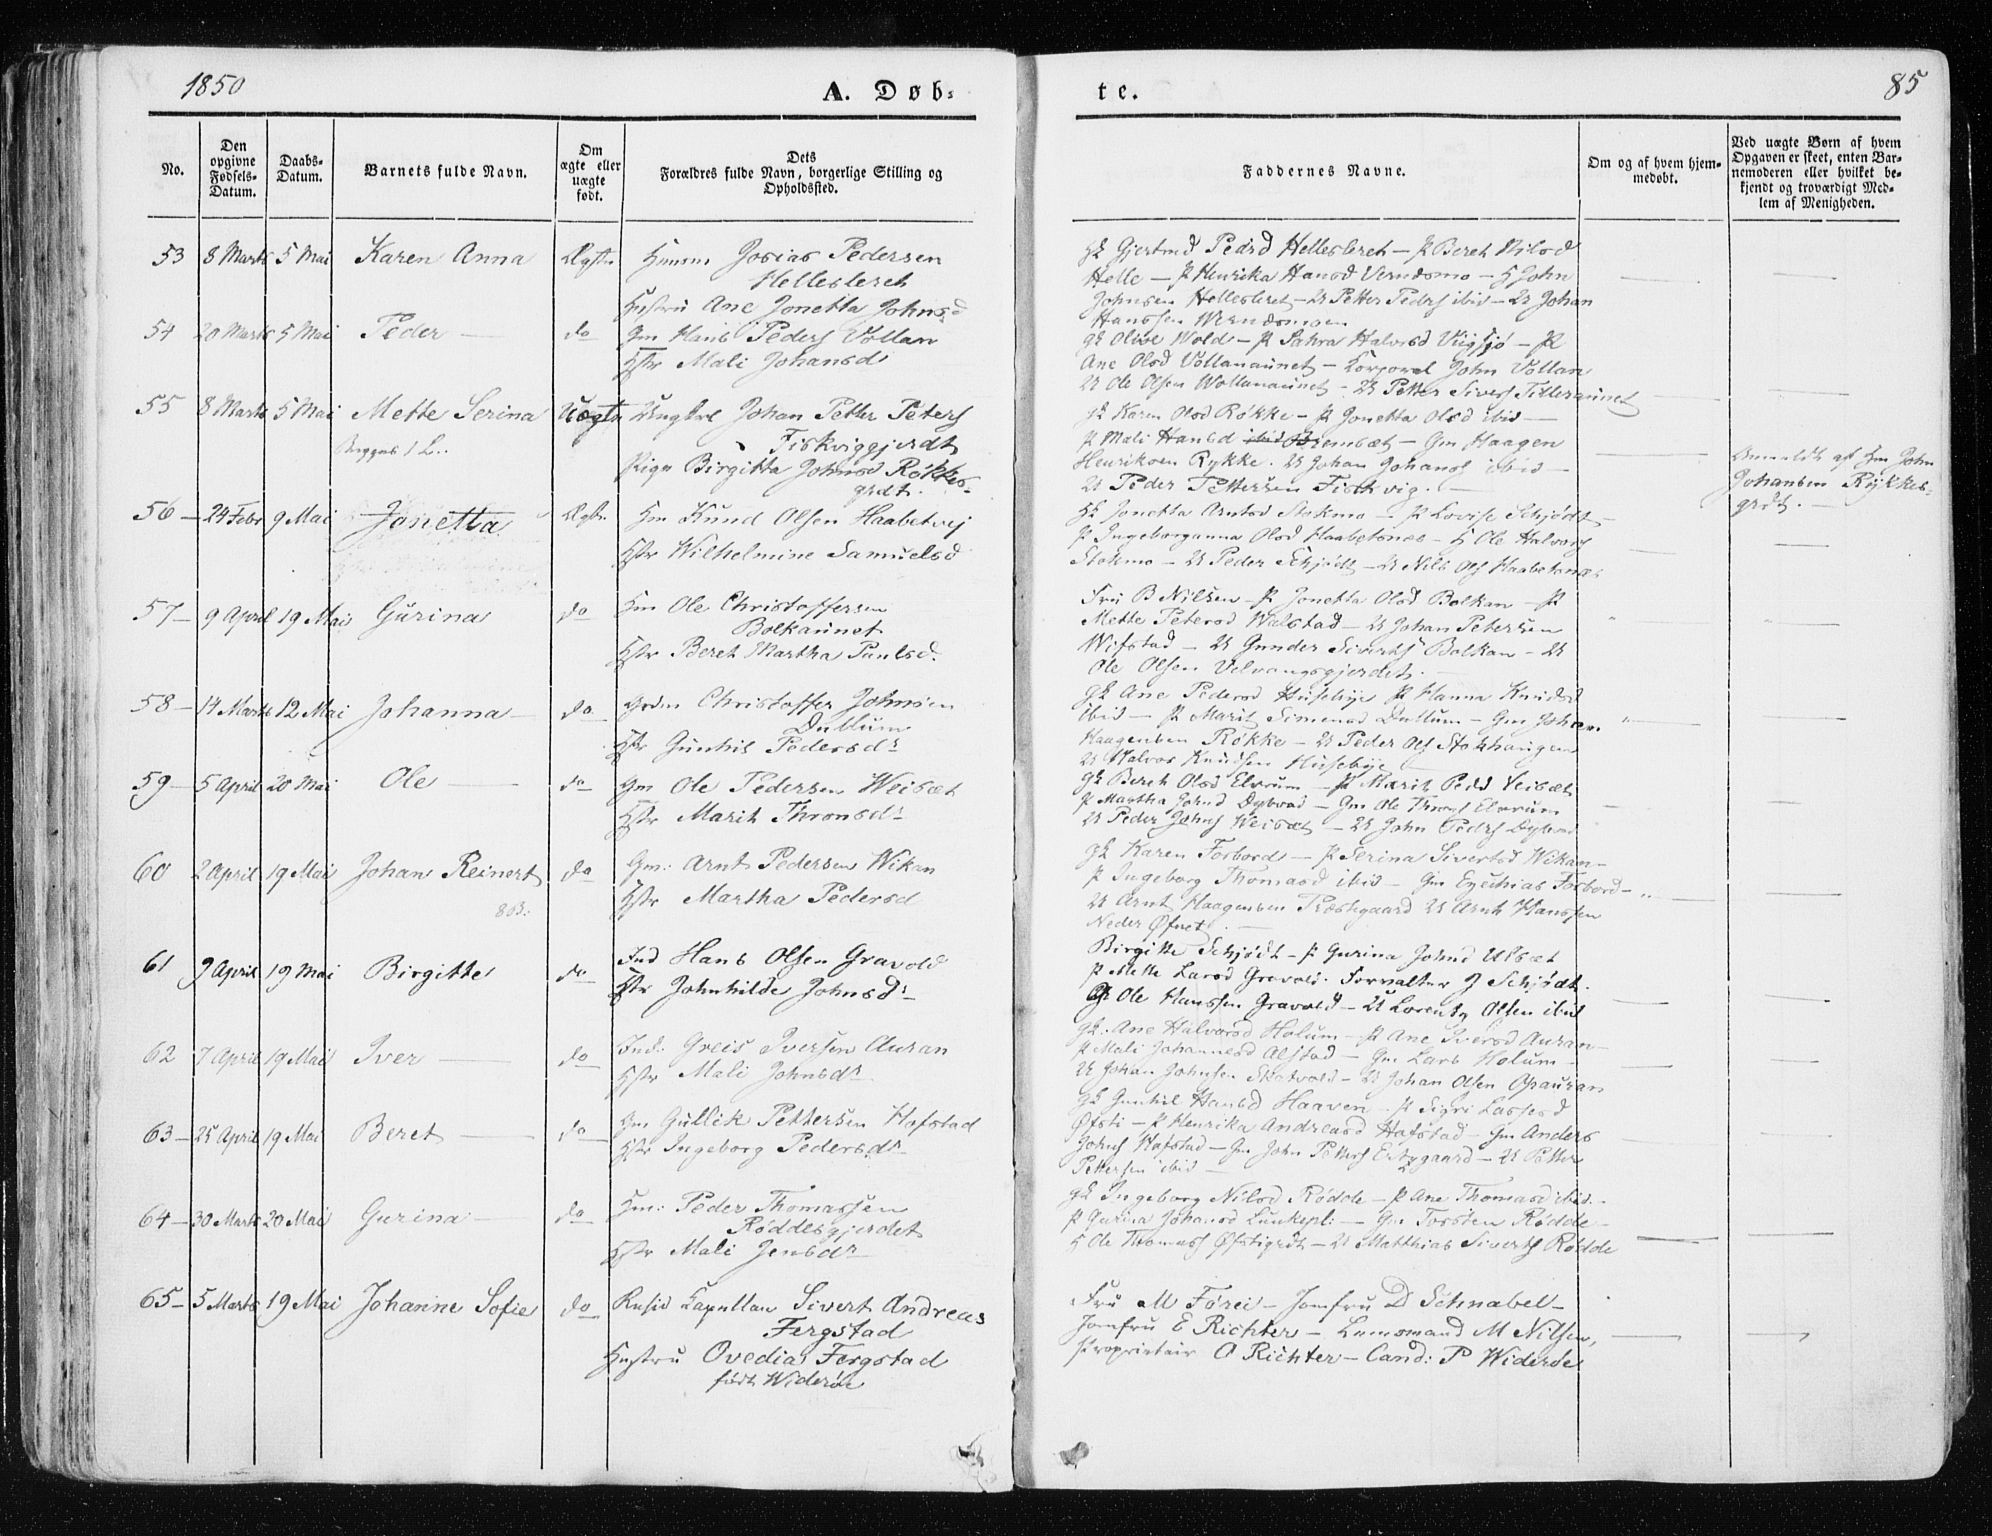 1850
A. Døb=
te.
85
No.
Den opgivne Fødsels-Datum.
Daabs-Datum.
Barnets fulde Navn.
Om ægte eller uægte født.
Dets Forældres fulde Navn, borgerlige Stilling og Opholdssted.
Faddernes Navne.
Om og af hvem hjemmedøbt.
Ved uægte Børn af hvem Opgaven er skeet, enten Barnemoderen eller hvilket bekjendt og troværdigt Medlem af Menigheden.
53 8 Marts 5 Mai Karen Anna Ægte Josias Pedersen
Hellesleret
Hustru Ane Jonetta Johnsd
Gk Gjertrud Pedrd Hellesleret - P Beret Nilsd
Helle - P Henrika Hansd Verndsmo - John
Johnsen Hellesleret - U Petter Peders ibid - U Johan
Hanssen Werndsmoen
54 20 Marts 5 Mai Peder do Gm Hans Peders Vollan
Hstr Mali Johansd
Gk Olive Wold - P Sahra Halvsd Viigsjø - P
Ane Olsd Vollanaunet - Korporal John Vollan
U Ole Olsen Wollanaunet - U Petter Sivers Tilleraunet
55 8 Marts 5 Mai Mette Serina Uægte Ungkrl Johan Petter Peters
Fiskviggjerdt
Pige Birgitta Johnsd Røkkes-
grdt.
Gk Karen Olsd Røkke - P Jonetta Olsd ibid
P Mali Hansd Bremsæt - Gm Haagen
Henriksen Rykke. U Johan Johans ibid
U Peder Pettersen Fiskvig.
Anmeldt af Hm John
Johansen Rykkes-
grdt.
56 24 Febr 9 Mai Jonetta Ægte Hm Knud Olsen Haabetvej
Hstr Wilhelmine Samuelsd
Gk Jonetta Arntsd Stokmo - P Lovise Schjødt
P Ingeborganna Olsd Haabetsnæs - Ole Halvors
Stokmo - U Peder Schjødt - U Nils Ols Haabetsnæs
57 9 April 19 Mai Gurina do Hm Ole Christoffersen
Bolkaunet
Hstr Beret Martha Paulsd.
Fru B Nilsen - P Jonetta Olsd Bolkan - P
Mette Petersd Walstad - U Johan Petersen
Wifstad - U Gunder Siverts Bolkan - U
Ole Olsen Velvangsgjerdet.
58 14 Marts 12 Mai Johanna do Christoffer Johnsen
Dullum
Hstr Gunhil Pedersdr
Gk Ane Pedersd Husebye P Hanna Knudsd
ibid - P Marit Simonsd Dullum - Gm Johan
Haagensen Røkke - U Peder Ols Stokhaugen
U Halvor Knudsen Husebye
59 5 April 20 Mai Ole do Gm Ole Pedersen Weisæt
Hstr Marit Thronsdr
Gk Beret Olsd Elvrum - P Marit Pedd Veisæt
P Martha Johnd Dybvad - Gm Ole Throns Elvrum
U Peder Johns Weisæt - U John Peders Dybvad
60 2 April 19 Mai Johan Reinert do Gm: Arnt Pedersen Wikan
Hstr Martha Pedersd
Gk Karen Forbord - P Serina Sivertsd Wikan
P Ingeborg Thomasd ibid - Gm Ezechias Forbord
U Arnt Haagensen Præstegaard U Arnt Hanssen
Neder Øfset
61 9 April 19 Mai Birgitte do Ind Hans Olsen Gravold
Hstr Johnhilde Johnsdr
Birgitte Schjødt - P Gurina Johnd Ulsæt
P Mette Larsd Gravold. Forvalter J Schjødt.
Ole Hanssen Gravold - U Lorentz Olsen ibid
62 7 April 19 Mai Iver do Ind: Greis Iversen Auran
Hstr Mali Johnsdr
Gk: Ane Halvorsd Holum - P Ane Iversd Auran
P Mali Johannesd Alstad - Gm Lars Holum
U Johan Johnsen Skatvold - U Johan Olsen Opauran
63 25 April 19 Mai Beret do Gm Gullik Pettersen Hafstad
Hstr Ingeborg Pedersdr
Gk Gunhil Hansd Haaven - P Sigri Lassesd
Øfsti - P Henrika Andreasd Hafstad - Gm Anders
Johns Hafstad - Gm John Petters Østygaard - U Petter
Pettersen ibid
64 30 Marts 20 Mai Gurina do Hm: Peder Thomassen
Røddesgjerdet
Hstr Mali Jensdr
Gk Ingeborg Nilsd Rødde - P Ane Thomasd ibid.
P Gurina Johansd Lunkepl: - Gm Torsten Rødde
Ole Thomass Øfstigrdt - U Matthias Siverts Rødde
65 5 Marts 19 Mai Johanne Sofie do Resid Kapellan Sivert Andreas
Fergstad
Hustru Ovedia Fergstad
født Widerøe
Fru M Førei - Jomfru D Schnabel
Jomfru E Richter - Lensmand M Nilsen,
Proprietair O Richter - Cand: P Widerøe